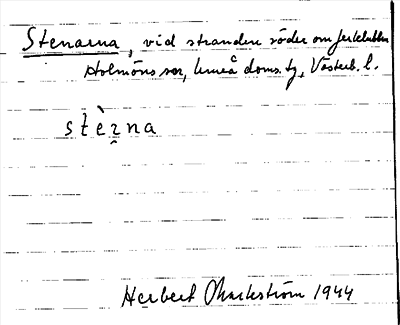 Stenarna, vid stranden söder om
Holmöns sn, Umeå doms.tg, Västerb. l.
stèrna
Herbert Markström 1944